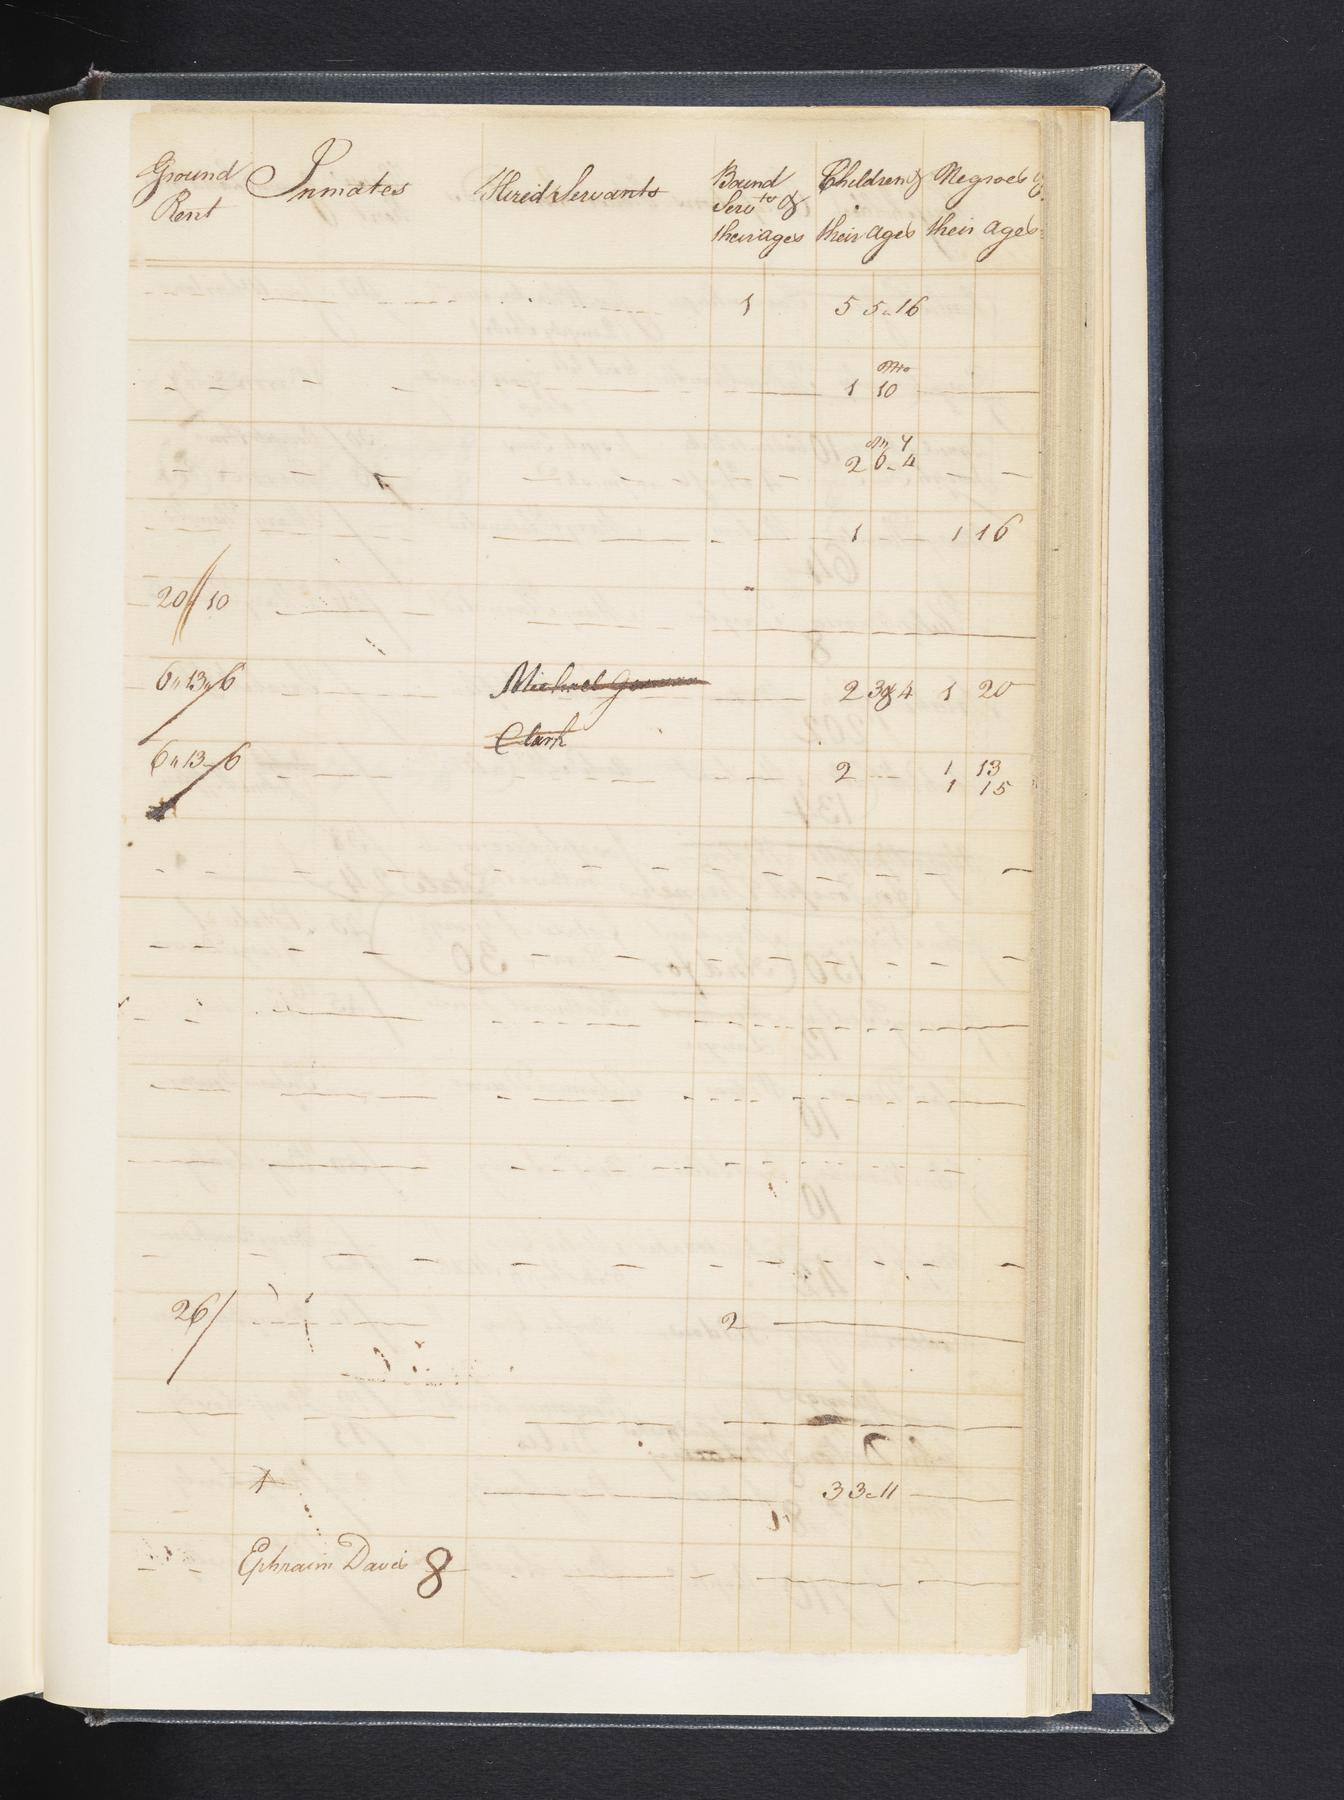 Ground Rent Inmates Hired Servants Bound Servts & their ages Children & their ages Negroes & their ages
1 5 5 " 16
Mo
1 10
m y
2 6 - 4
1 1 16
20 / 10
6 " 13 " 6 Michael 2 3 & 4 1 20
Clark
6 " 13 - 6 2 1 13
1 15
26 / 2
3 3 - 11
Ephraim Davis 8